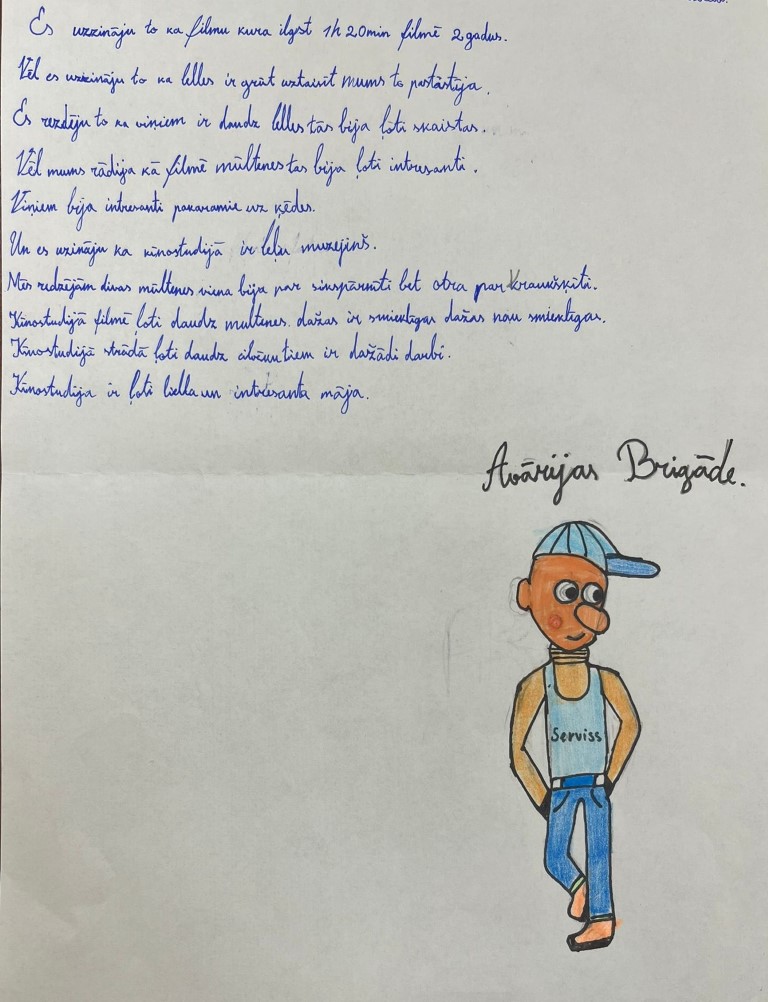 Es uzzināju to ka filmu kura ilgst 1h 20min filmē 2 gadus.
Vēl es uzzināju to ka lelles ir grūt uztaisīt mums to pastāstīja.
Es rezdēju to ka viņiem ir daudz lelles tās bija ļoti skaistas.
Vēl mums rādīja kā filmē multenes tas bija ļoti intresanti.
Viņiem bija intresanti pakaramie uz ķēdes.
Un es uzināju ka kinostudijā ir leļu muzejiņš.
Mēs redzējām divas multenes viena bija par sinspārnīti bet otra par Kraukšķīti.
Kinostudijā filmē ļoti daudz multenes dažas ir smieklīgas dažas nau smieklīgas.
Kinostudijā strādā ļoti daudz cilvēku tiem ir dažādi darbi.
Kinostudija ir ļoti liella un intresanta māja.
Avārijas Brigāde.
Serviss